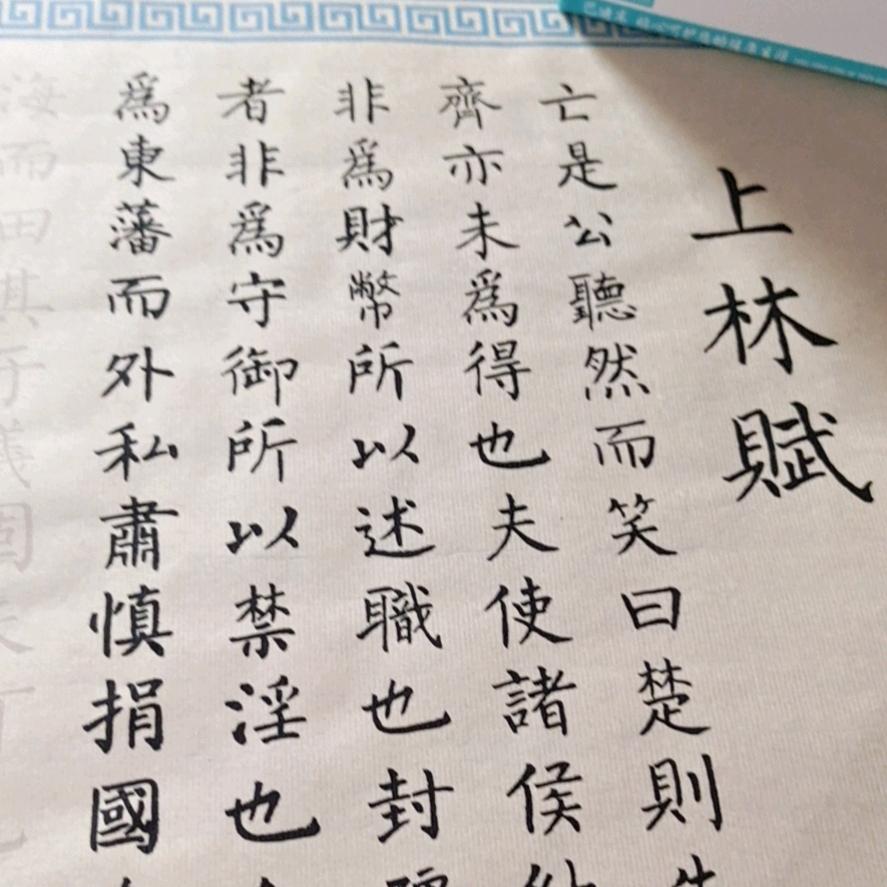 上林賦
亡是公聽然而笑曰楚則
齊亦未為得也夫使諸侯
非為財幣所以述職也封
者非為守御所以禁淫也
為東藩而外私肅慎捐國